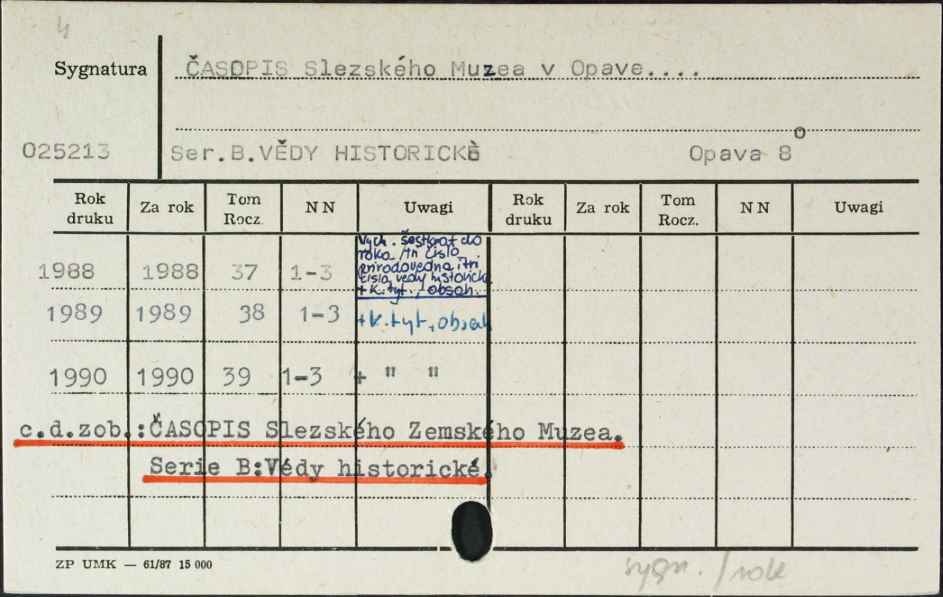 4
Sygnatura ČASOPIS Slezského Muzea v Opave....
025213 Ser.B.VĚDY HISTORICKÈ Opava 8°
Rok druku Za rok Tom Rocz. NN Uwagi Rok druku Za rok Tom Rocz. NN Uwagi
Vych. šestkrat do
roka /tri čislo
prirodovedna i tri
čisla vedy historické
1988 1988 37 1-3 + K. tyt., obsah.
1989 1989 38 1-3 + k. tyt, obsah
1990 1990 39 1-3 + " "
c.d.zob.:ČASOPIS Slezského Zemského Muzea.
Serie B:Védy historické.
ZP UMK — 61/87 15 000
sygn. / rok